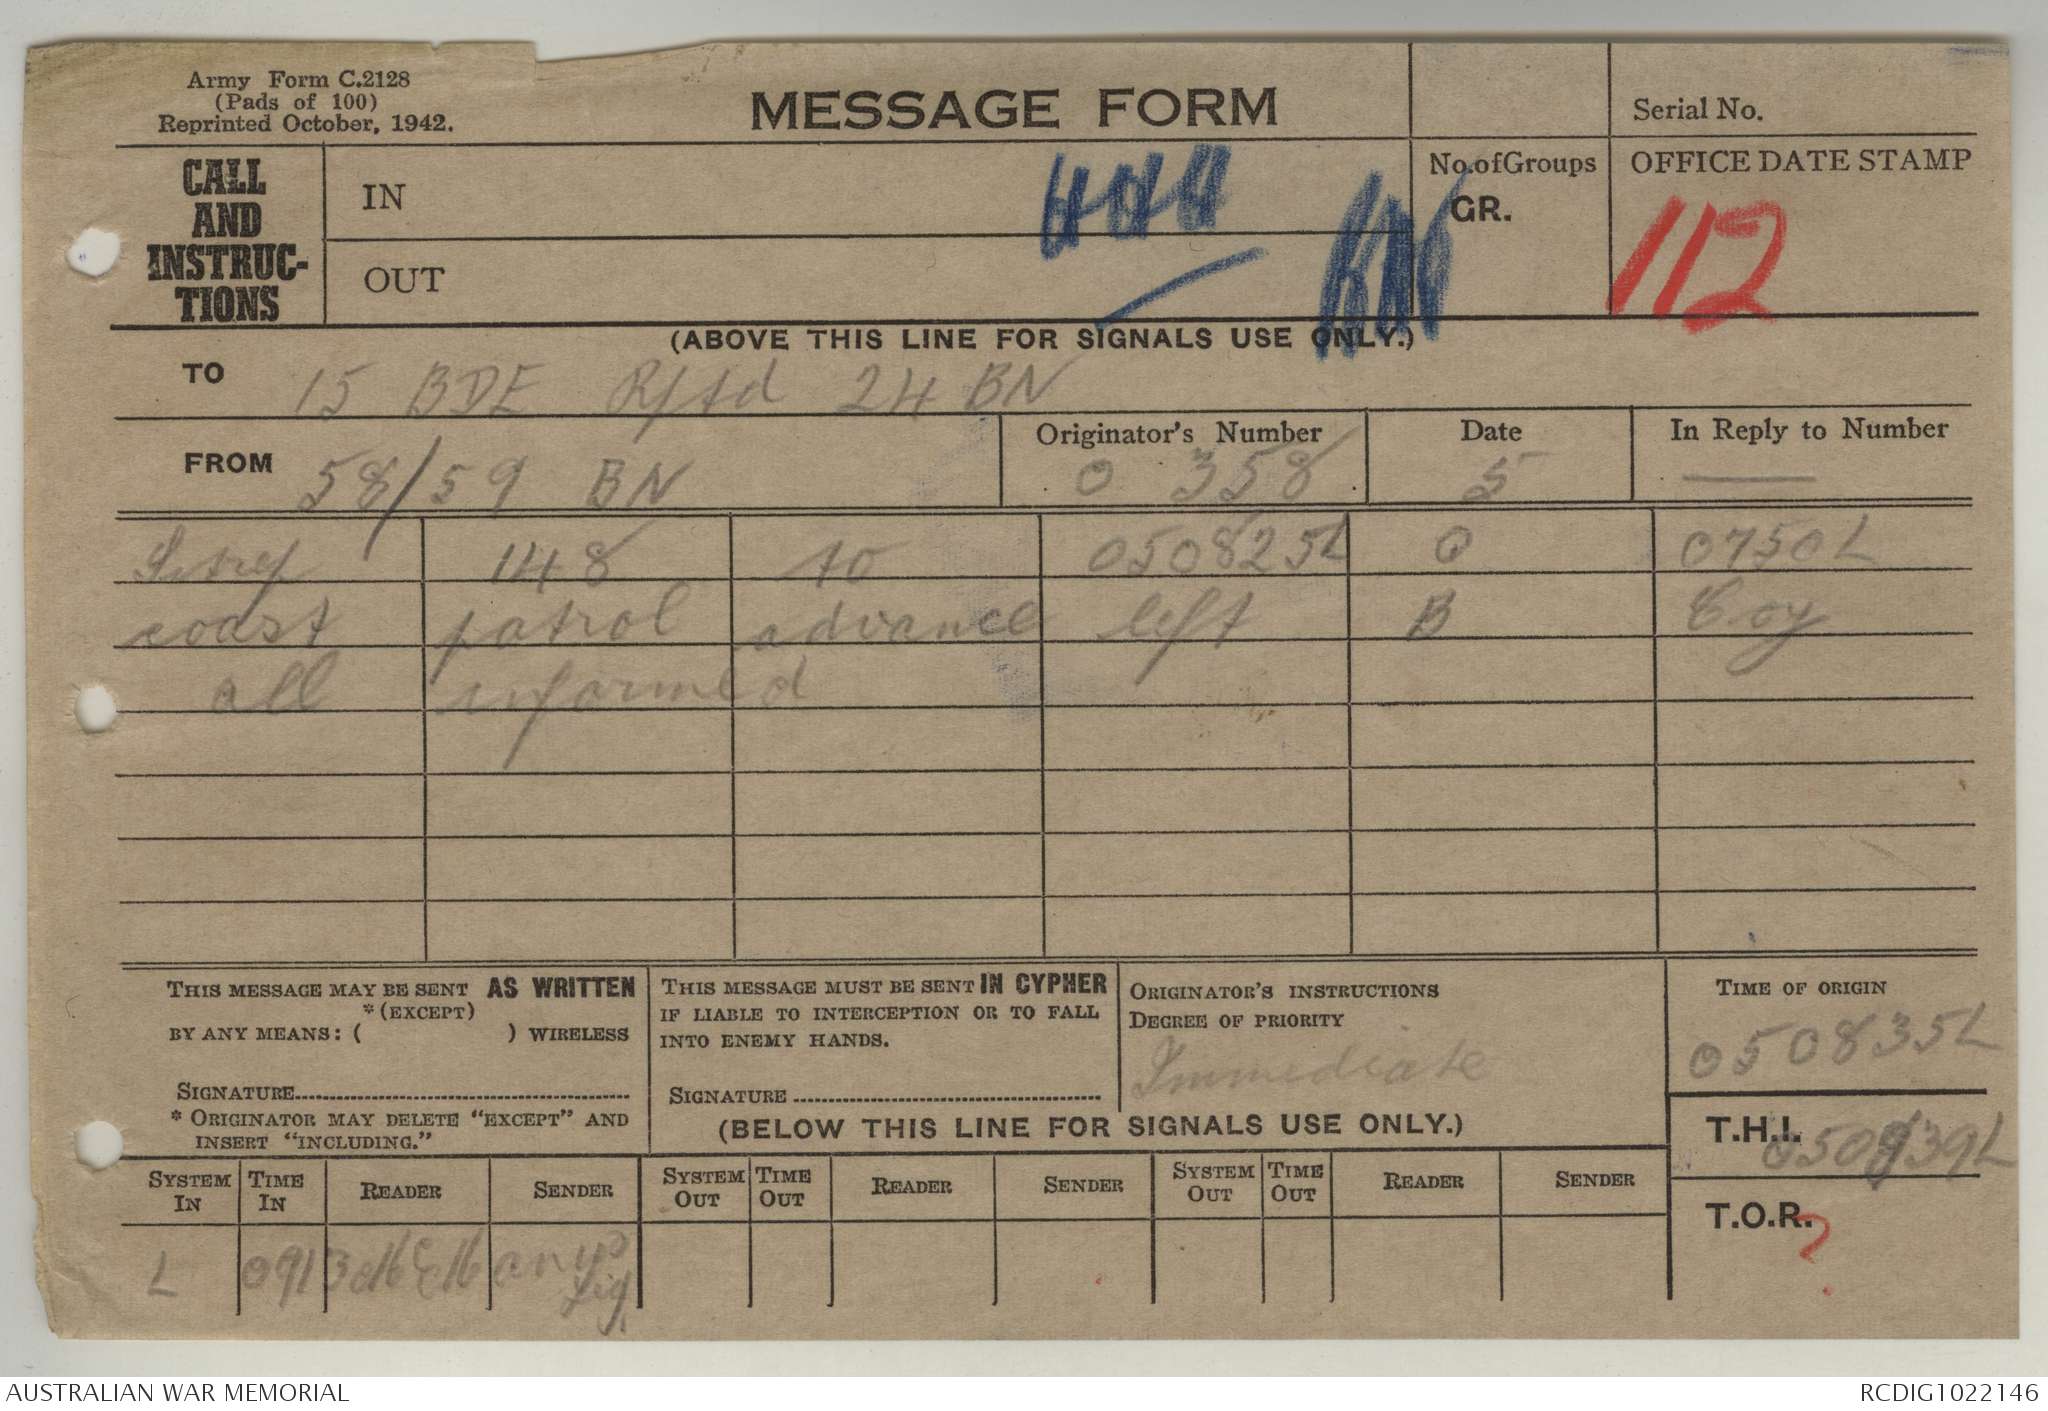 Army Form C.2128
(Pads of 100)
Reprinted October, 1942.
MESSAGE FORM
Serial No.
CALL
AND
INSTRUC-
TIONS
IN
OUT
No. of Groups
GR.
OFFICE DATE STAMP
112
(ABOVE THIS LINE FOR SIGNALS USE ONLY.)
TO 15 BDE Rptd 24 BN
FROM 58/59 BN
Originator's Number
O 358
Date
5
In Reply to Number
—
Sitrep 148 to 050825L O 0750L
coast patrol advance left B Coy
all informed
THIS MESSAGE MAY BE SENT AS WRITTEN
*(EXCEPT)
BY ANY MEANS: ( ) WIRELESS
SIGNATURE
* ORIGINATOR MAY DELETE "EXCEPT" AND
INSERT "INCLUDING."
THIS MESSAGE MUST BE SENT IN CYPHER
IF LIABLE TO INTERCEPTION OR TO FALL
INTO ENEMY HANDS.
SIGNATURE
ORIGINATOR'S INSTRUCTIONS
DEGREE OF PRIORITY
Immediate
TIME OF ORIGIN
050835L
(BELOW THIS LINE FOR SIGNALS USE ONLY.)
T.H.I. 050839L
T.O.R. ?
SYSTEM IN TIME IN READER SENDER SYSTEM OUT TIME OUT READER SENDER SYSTEM OUT TIME OUT READER SENDER
L 0913
Sig
AUSTRALIAN WAR MEMORIAL
RCDIG1022146